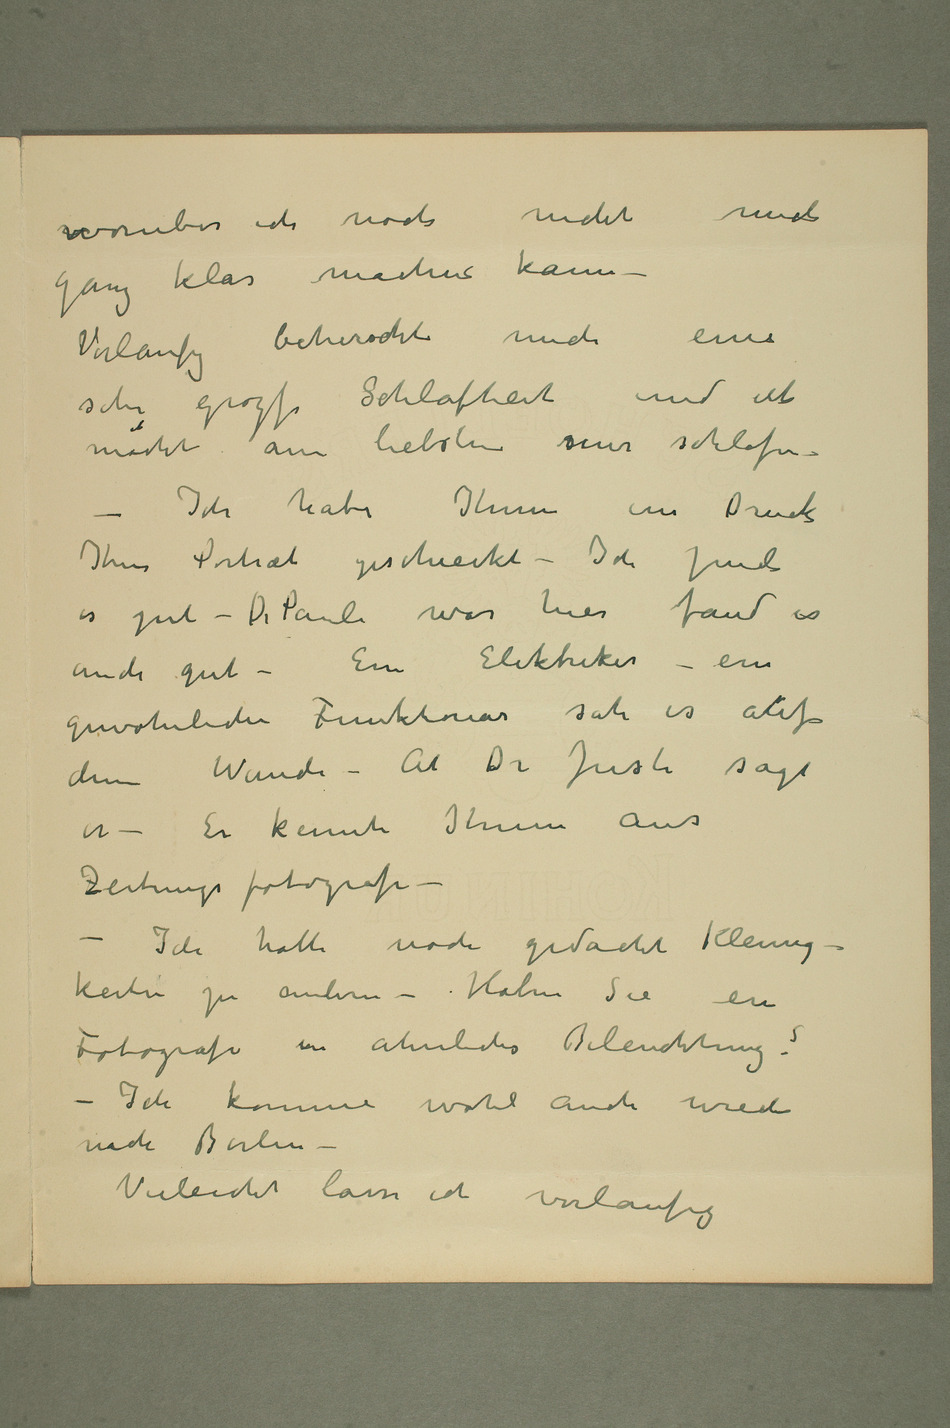 worüber ich noch nicht mich
ganz klar machen kann –
Vorläufig beherscht mich eine
sehr grozse Schlafheit und ich
möcht am liebsten nur schlafen –
– Ich habe Ihnen ein Druck
Ihres Porträt geschickt – Ich find
es gut – Dr Pauli war hier fand es
auch gut – Ein Elektriker – ein
gewöhnlicher Funktionär sah es auf
dem Wande – Ah Dr Juste sagt
er – Er kennte Ihnen aus
Zeitungsfotografi –
– Ich hatte noch gedacht Kleinig–
keiten zu ändern – Haben Sie ein
Fotografi in ähnliches Beleuchtung?
– Ich komme wohl auch wied
nach Berlin –
Vieleicht lasse ich vorläufig
KOHINOOR